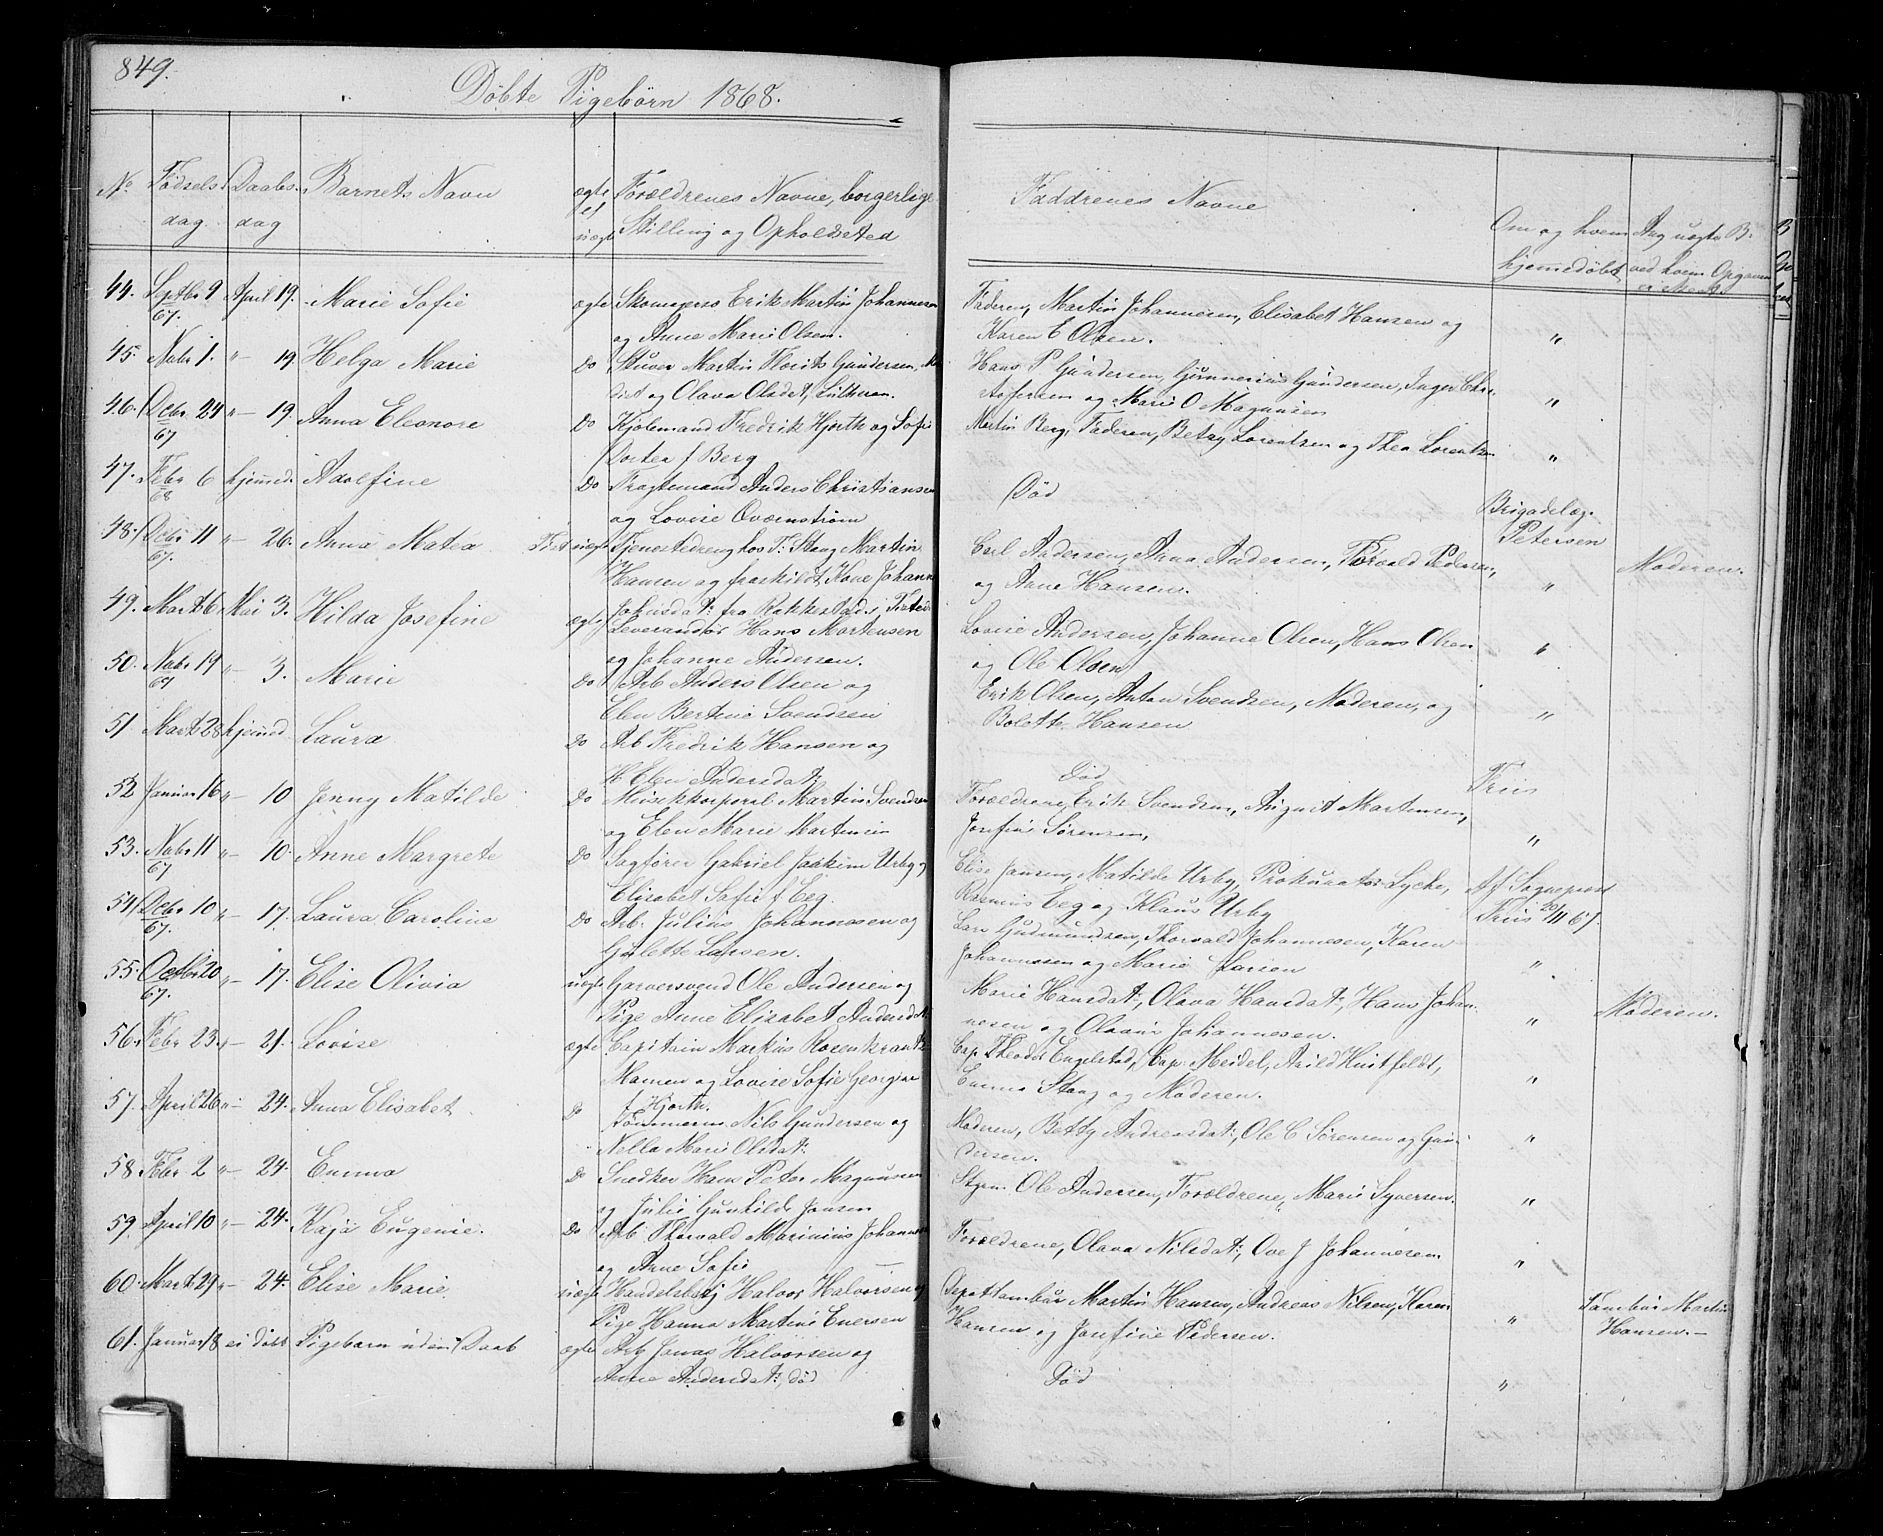 849.
Döbte Pigebörn 1868.
No Födsels Daabs- Barnets Navn ægte Forældrenes Navne, borgerlige Faddrenes Navne
dag. dag el uægte Stilling og Opholdsted
Om og hvem hjemmedöbt
Ang uægte B. ved hvem Opgaven
44. Septbr 9 67. April 19. Marie Sofie ægte Skomagersv Erik Martin Johannesen Faderen, Martin Johannesen, Elisabet Hansen og
og Anne Marie Olsen. Karen E Olsen. "
45. Nobr 1. " 19 Helga Marie Do Stuver Martin Gundersen, Hans P Gundersen, Gunnerius Gundersen, Inger Chri-
og Olava Olsdat, Luthran. stofersen og Marie O Magnusen "
46. Decbr 24 67 " 19. Anna Eleonore Do Fredrik Hjorth og Sofie Martin Berg, Faderen, Betzy Lorentzen og Thea Lorentzen
Dortea f Berg "
47. Febr 6 68 hjemmed. Adolfine Do Fragtemand Anders Christiansen Död Brigadelæg.
og Lovise Qvarnström Petersen
48. Decbr 11 67. " 26. Anna Matea uægte Tjenestedreng hos F: Stang Martin Carl Andersen, Anna Andersen, Torvald Pedersen,
Hansen og fraskildt Kone Johanne og Anne Hansen. " Moderen.
Johnsdat: fra Rakkestad
49. Marts 6 Mai 3. Hilda Josefine ægte Leverandör Hans Mortensen Lovise Andersen, Johanne Olsen, Hans Olsen
og Johanne Andersen. og Ole Olsen "
50. Nobr 19 67 " 3. Marie Do Arb Anders Olsen og Erik Olsen, Anton Svendsen, Moderen, og
Elen Bertine Svendsen Bolette Hansen "
51. Marts 28 hjemmed Laura Do Arb Fredrik Hansen og
H Elen Andersdat: Död Friis
52 Januar 16 " 10 Jenny Matilde Do Musikkorporal Martin Svendsen Forældrene, Erik Svendsen, August Martensen,
og Elen Marie Martensen Josefine Sörensen, "
53. Nobr 11 67 " 10. Anne Margrete Do Sagförer Gabriel Joakim Urby og Elise Jansen, Matilde Urby, Prokurator Lycke, Af Sognepræst
Elisabet Sofie f Eeg. Rasmus Eeg og Klaus Urby Friis 20/11 67.
54 Decbr 10 67. " 17. Laura Caroline Do Arb. Julius Johannesen og Lars Gudmundsen, Thorvald Johannesen, Karen
Gulette Larsen. Johannesen og Marie Larsen "
55. Octbr 20 67. " 17. Elise Olivia uægte Garversvend Ole Andersen og Marie Hansdat:, Olava Hansdat:, Hans Johan-
Pige Anne Elisabet Andersdat: nesen og Olaus Johannesen. " Moderen.
56. Febr 23. " 21. Lovise ægte Capitain Markus Rosenkrantz Cap. Theodor Engelstad, Cap. Meidel, Arild Huitfeldt,
Mamen og Lovise Sofie Georgine Emma Stang og Moderen. "
f Hjorth.
57. April 26 " 24. Anna Elisabet Do Tömmerm Nils Gundersen og Moderen, Betty Andreasdat:, Ole C Sörensen og Gun-
Nella Marie Olsdat: dersen. "
58. Febr 2 " 24. Emma Do Snedker Hans Peter Magnusen Styrm Ole Andersen, Forældrene, Marie Syversen.
og Julie Gunhilde Jansen "
59. April 10 " 24. Kaja Eugenie. Do Arb Thorvald Marinius Johannesen Forældrene, Olava Nilsdat:, Ove J Johannesen
og Anne Sofie — "
60. Marts 29 " 24. Elise Marie. uægte Handelsbetj Halvor Halvorsen og Depottambur Martin Hansen, Andreas Nilsen, Karen
Pige Hanna Martine Enersen Hansen og Josefine Pedersen. " Tambur Martin Hansen.—
61. Januar 18 ei döbt Pigebarn uden Daab ægte Arb Jonas Halvorsen og
Anne Andersdat:, död Död "